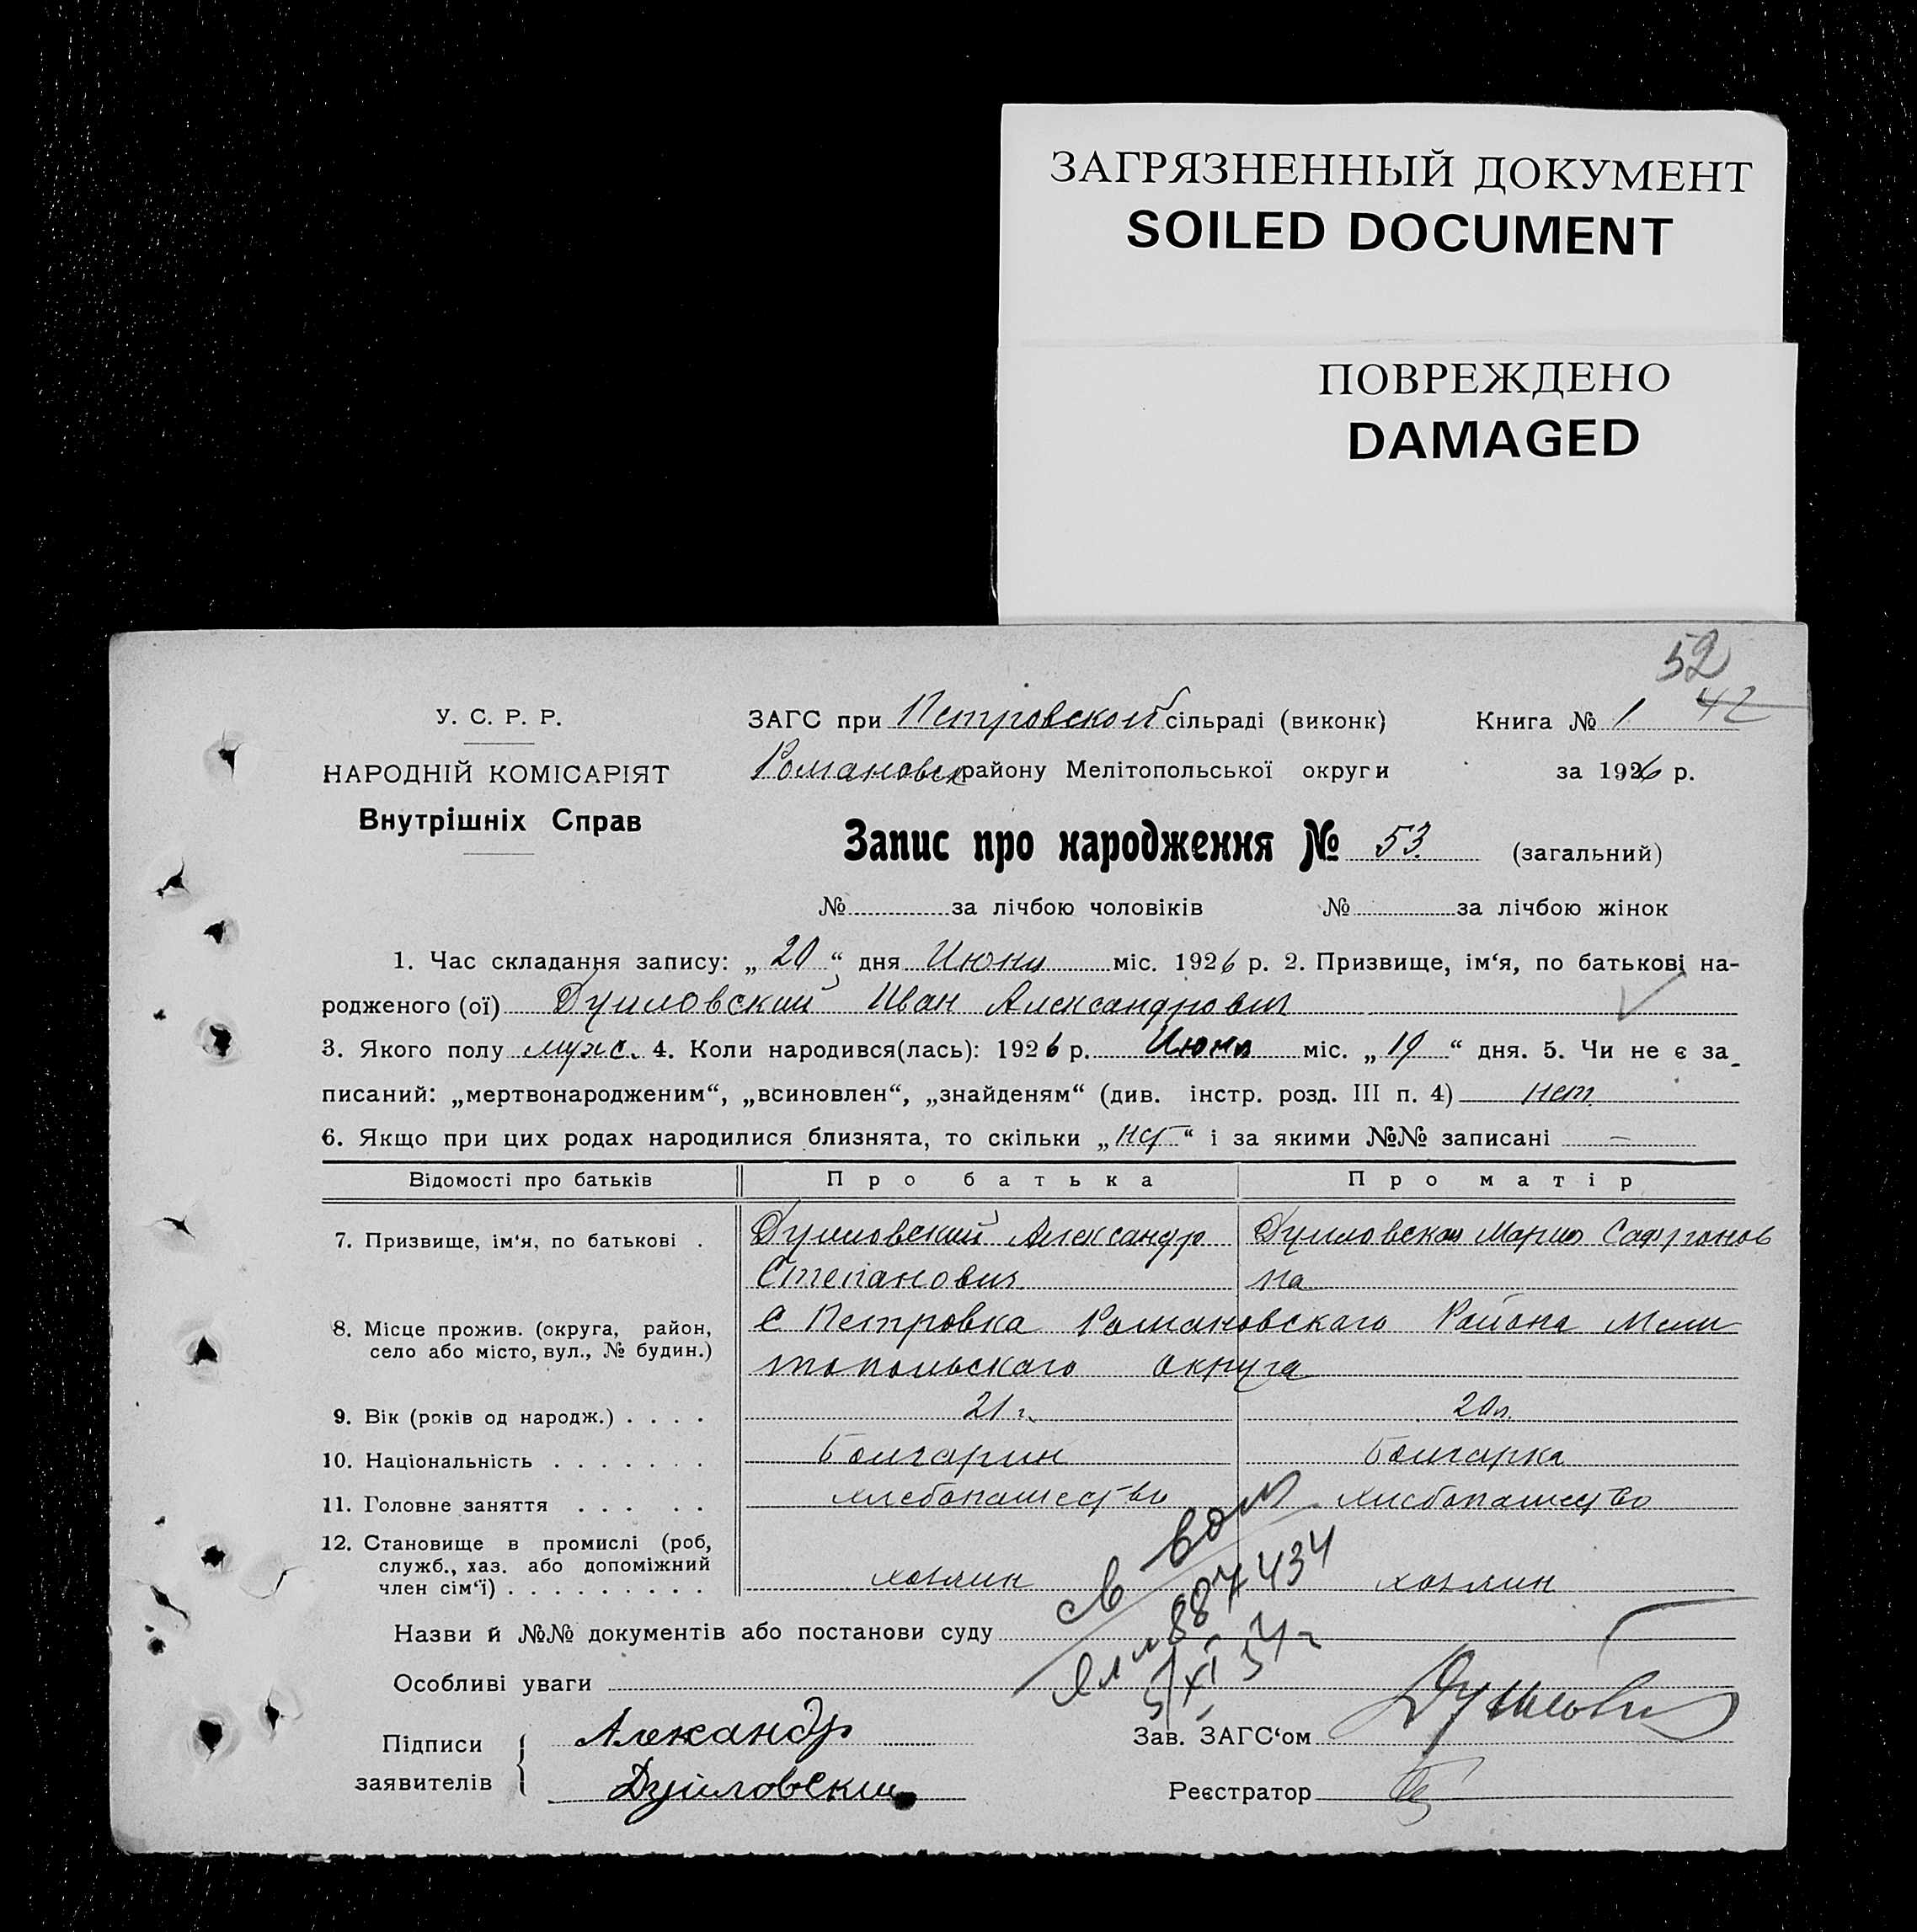 ЗАГРЯЗНЕННЫЙ ДОКУМЕНТ
SOILED DOCUMENT
ПОВРЕЖДЕНО
DAMAGED
52
42
У. С. Р. Р.
ЗАГС при Петровской сільраді (виконк) Книга № 1
НАРОДНІЙ КОМІСАРІЯТ
Романовск району Мелітопольської округи за 1926 р.
Внутрішніх Справ
Запис про народження № 53. (загальний)
№ за лічбою чоловіків № за лічбою жінок
1. Час складання запису: „ 20 “ дня Июня міс. 1926 р. 2. Призвище, ім‘я, по батькові на-
родженого (ої) Дуйловский Иван Александрович
3. Якого полу муж. 4. Коли народився(лась): 1926 р. Июня міс. „ 19 “ дня. 5. Чи не є за-
писаний: „мертвонародженим“, „всиновлен“, „знайденям“ (див. інстр. розд. III п. 4) нет
6. Якщо при цих родах народилися близнята, то скільки „нет“ і за якими №№ записані —
Відомості про батьків Про батька Про матір
7. Призвище, ім‘я, по батькові . Дуйловский Александр Дуйловская Мария Сафронов
Степанович на
8. Місце прожив. (округа, район, село або місто, вул., № будин.) С Петровка Романовскаго Района Мели
топольскаго округа
9. Вік (років од народж.) . . . . 21 г. 20 л.
10. Національність . . . . . . . Болгарин Болгарка
11. Головне заняття . . . . . хлебопашество хлебопашество
12. Становище в промислі (роб,
служб., хаз. або допоміжний
член сім‘ї) . . . . . . . . . хозяин хозяин
св
887434
Назви й №№ документів або постанови суду
5/XI 54 г
Особливі уваги
Підписи Александр Зав. ЗАГС‘ом
заявителів Дуйловский Реєстратор